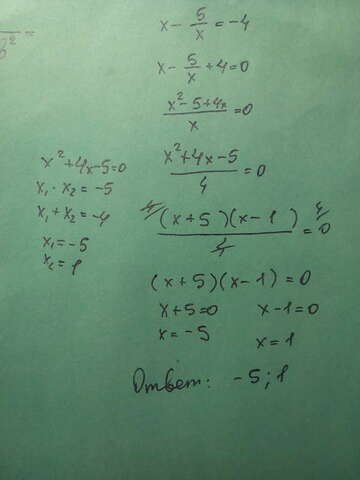 b² =
x - 5/x = -4
x - 5/x + 4 = 0
(x² - 5 + 4x)/x = 0
x² + 4x - 5 = 0
x₁ · x₂ = -5
x₁ + x₂ = -4
x₁ = -5
x₂ = 1
(x² + 4x - 5)/4 = 0
4/ (x + 5)(x - 1)/4 = 0 /4
(x + 5)(x - 1) = 0
x + 5 = 0 x - 1 = 0
x = -5 x = 1
Ответ: -5; 1